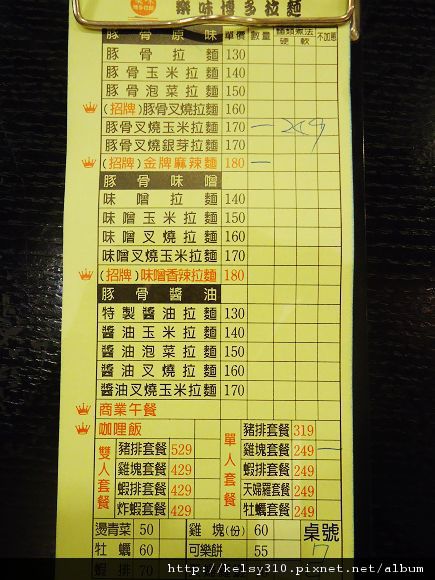 樂味博多拉麵
豚骨原味 單價 數量 麵類煮法 硬 軟 不加蔥
豚骨拉麵 130
豚骨玉米拉麵 140
豚骨泡菜拉麵 150
(招牌)豚骨叉燒拉麵 160
豚骨叉燒玉米拉麵 170 一
豚骨叉燒銀芽拉麵 170
(招牌)金牌麻辣麵 180 一
豚骨味噌
味噌拉麵 140
味噌玉米拉麵 150
味噌叉燒拉麵 160
味噌叉燒玉米拉麵 170
(招牌)味噌香辣拉麵 180
豚骨醬油
特製醬油拉麵 130
醬油玉米拉麵 140
醬油泡菜拉麵 150
醬油叉燒拉麵 160
醬油叉燒玉米拉麵 170
商業午餐
咖哩飯
雙人套餐
豬排套餐 529
雞塊套餐 429
蝦排套餐 429
炸蝦套餐 429
單人套餐
豬排套餐 319
雞塊套餐 249 一
蝦排套餐 249
天婦羅套餐 249
牡蠣套餐 249
燙青菜 50 雞塊(份) 60 桌號
牡蠣 60 可樂餅 55 7
蝦排 70
http://kelsy310.pixnet.net/album